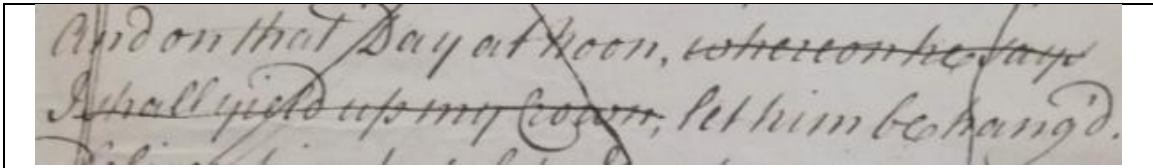 And on that Day at Noon, whereon he says
I shall yield up my Crown, let him be hang'd.